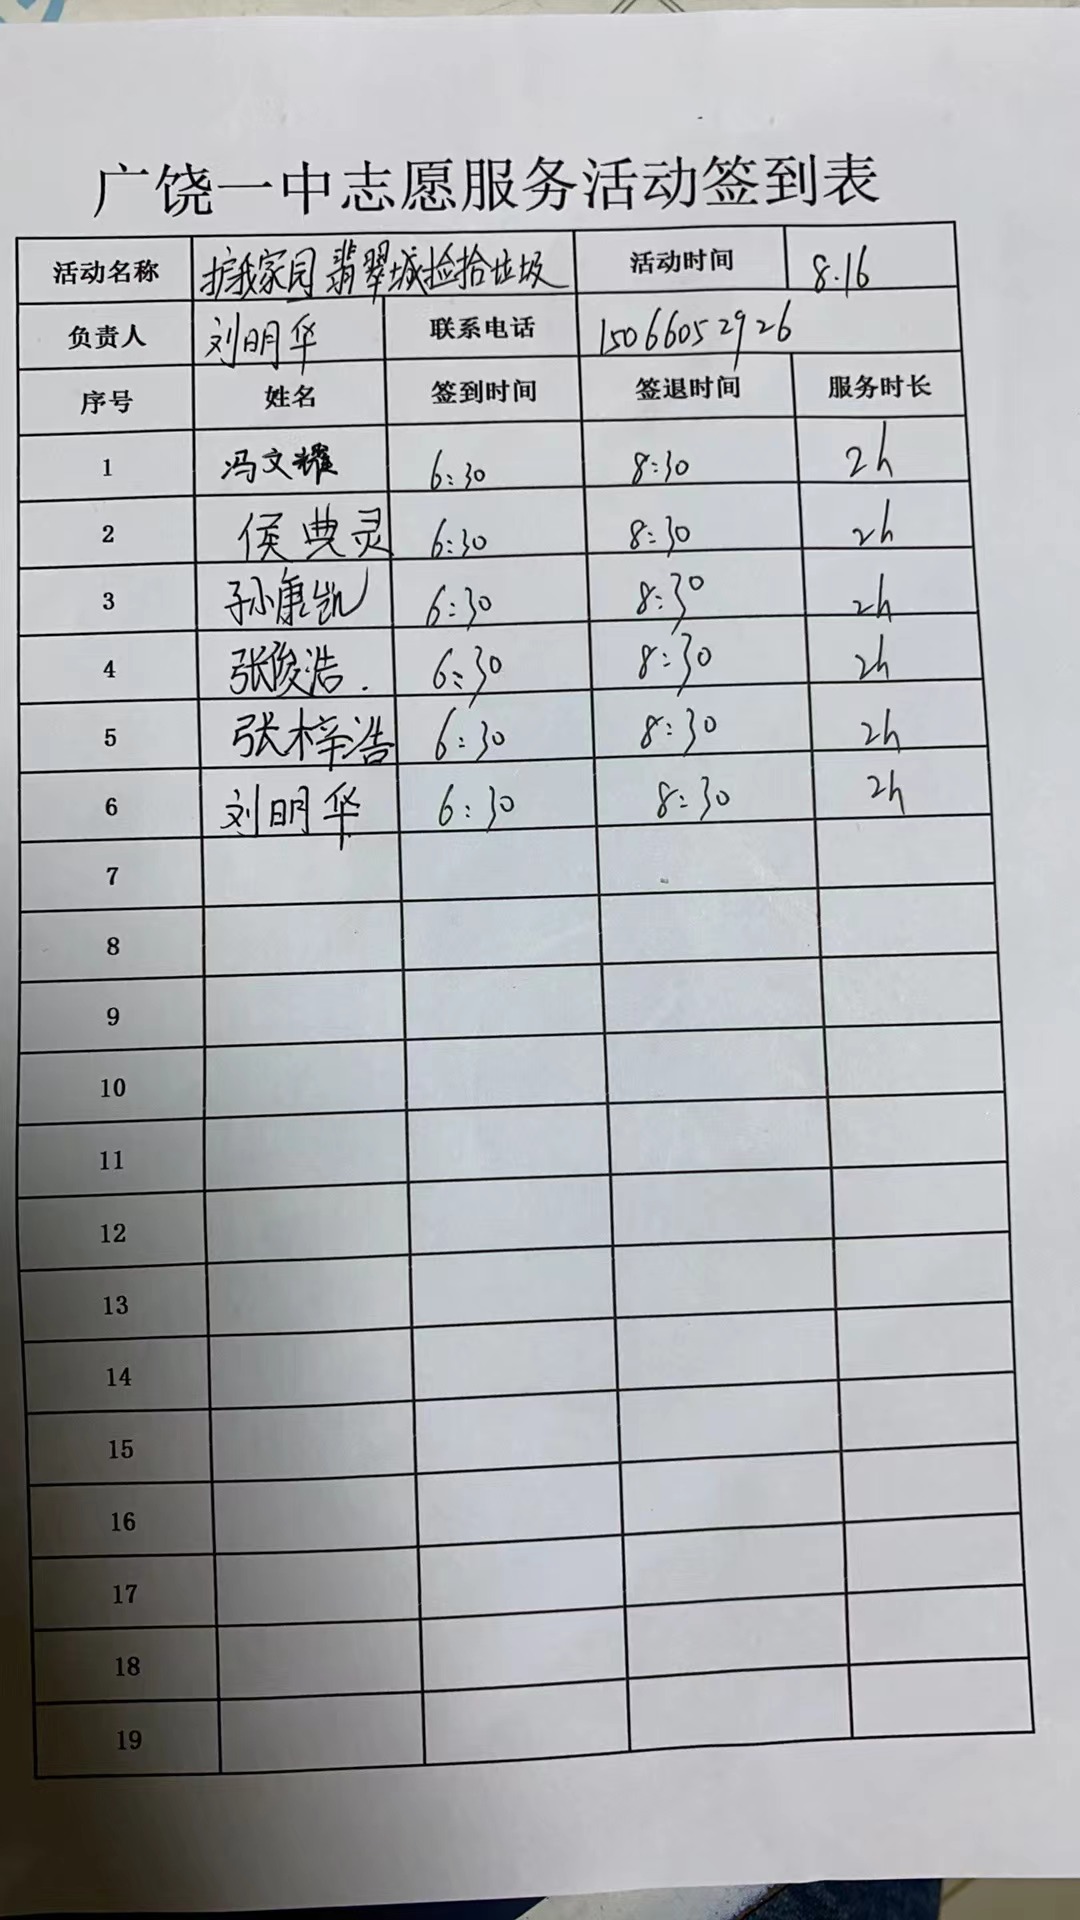 广饶一中志愿服务活动签到表
活动名称 护我家园 翡翠城捡拾垃圾 活动时间 8.16
负责人 刘明华 联系电话 15066052926
序号 姓名 签到时间 签退时间 服务时长
1 冯文耀 6:30 8:30 2h
2 侯典灵 6:30 8:30 2h
3 孙康凯 6:30 8:30 2h
4 张俊浩. 6:30 8:30 2h
5 张梓浩 6:30 8:30 2h
6 刘明华 6:30 8:30 2h
7
8
9
10
11
12
13
14
15
16
17
18
19